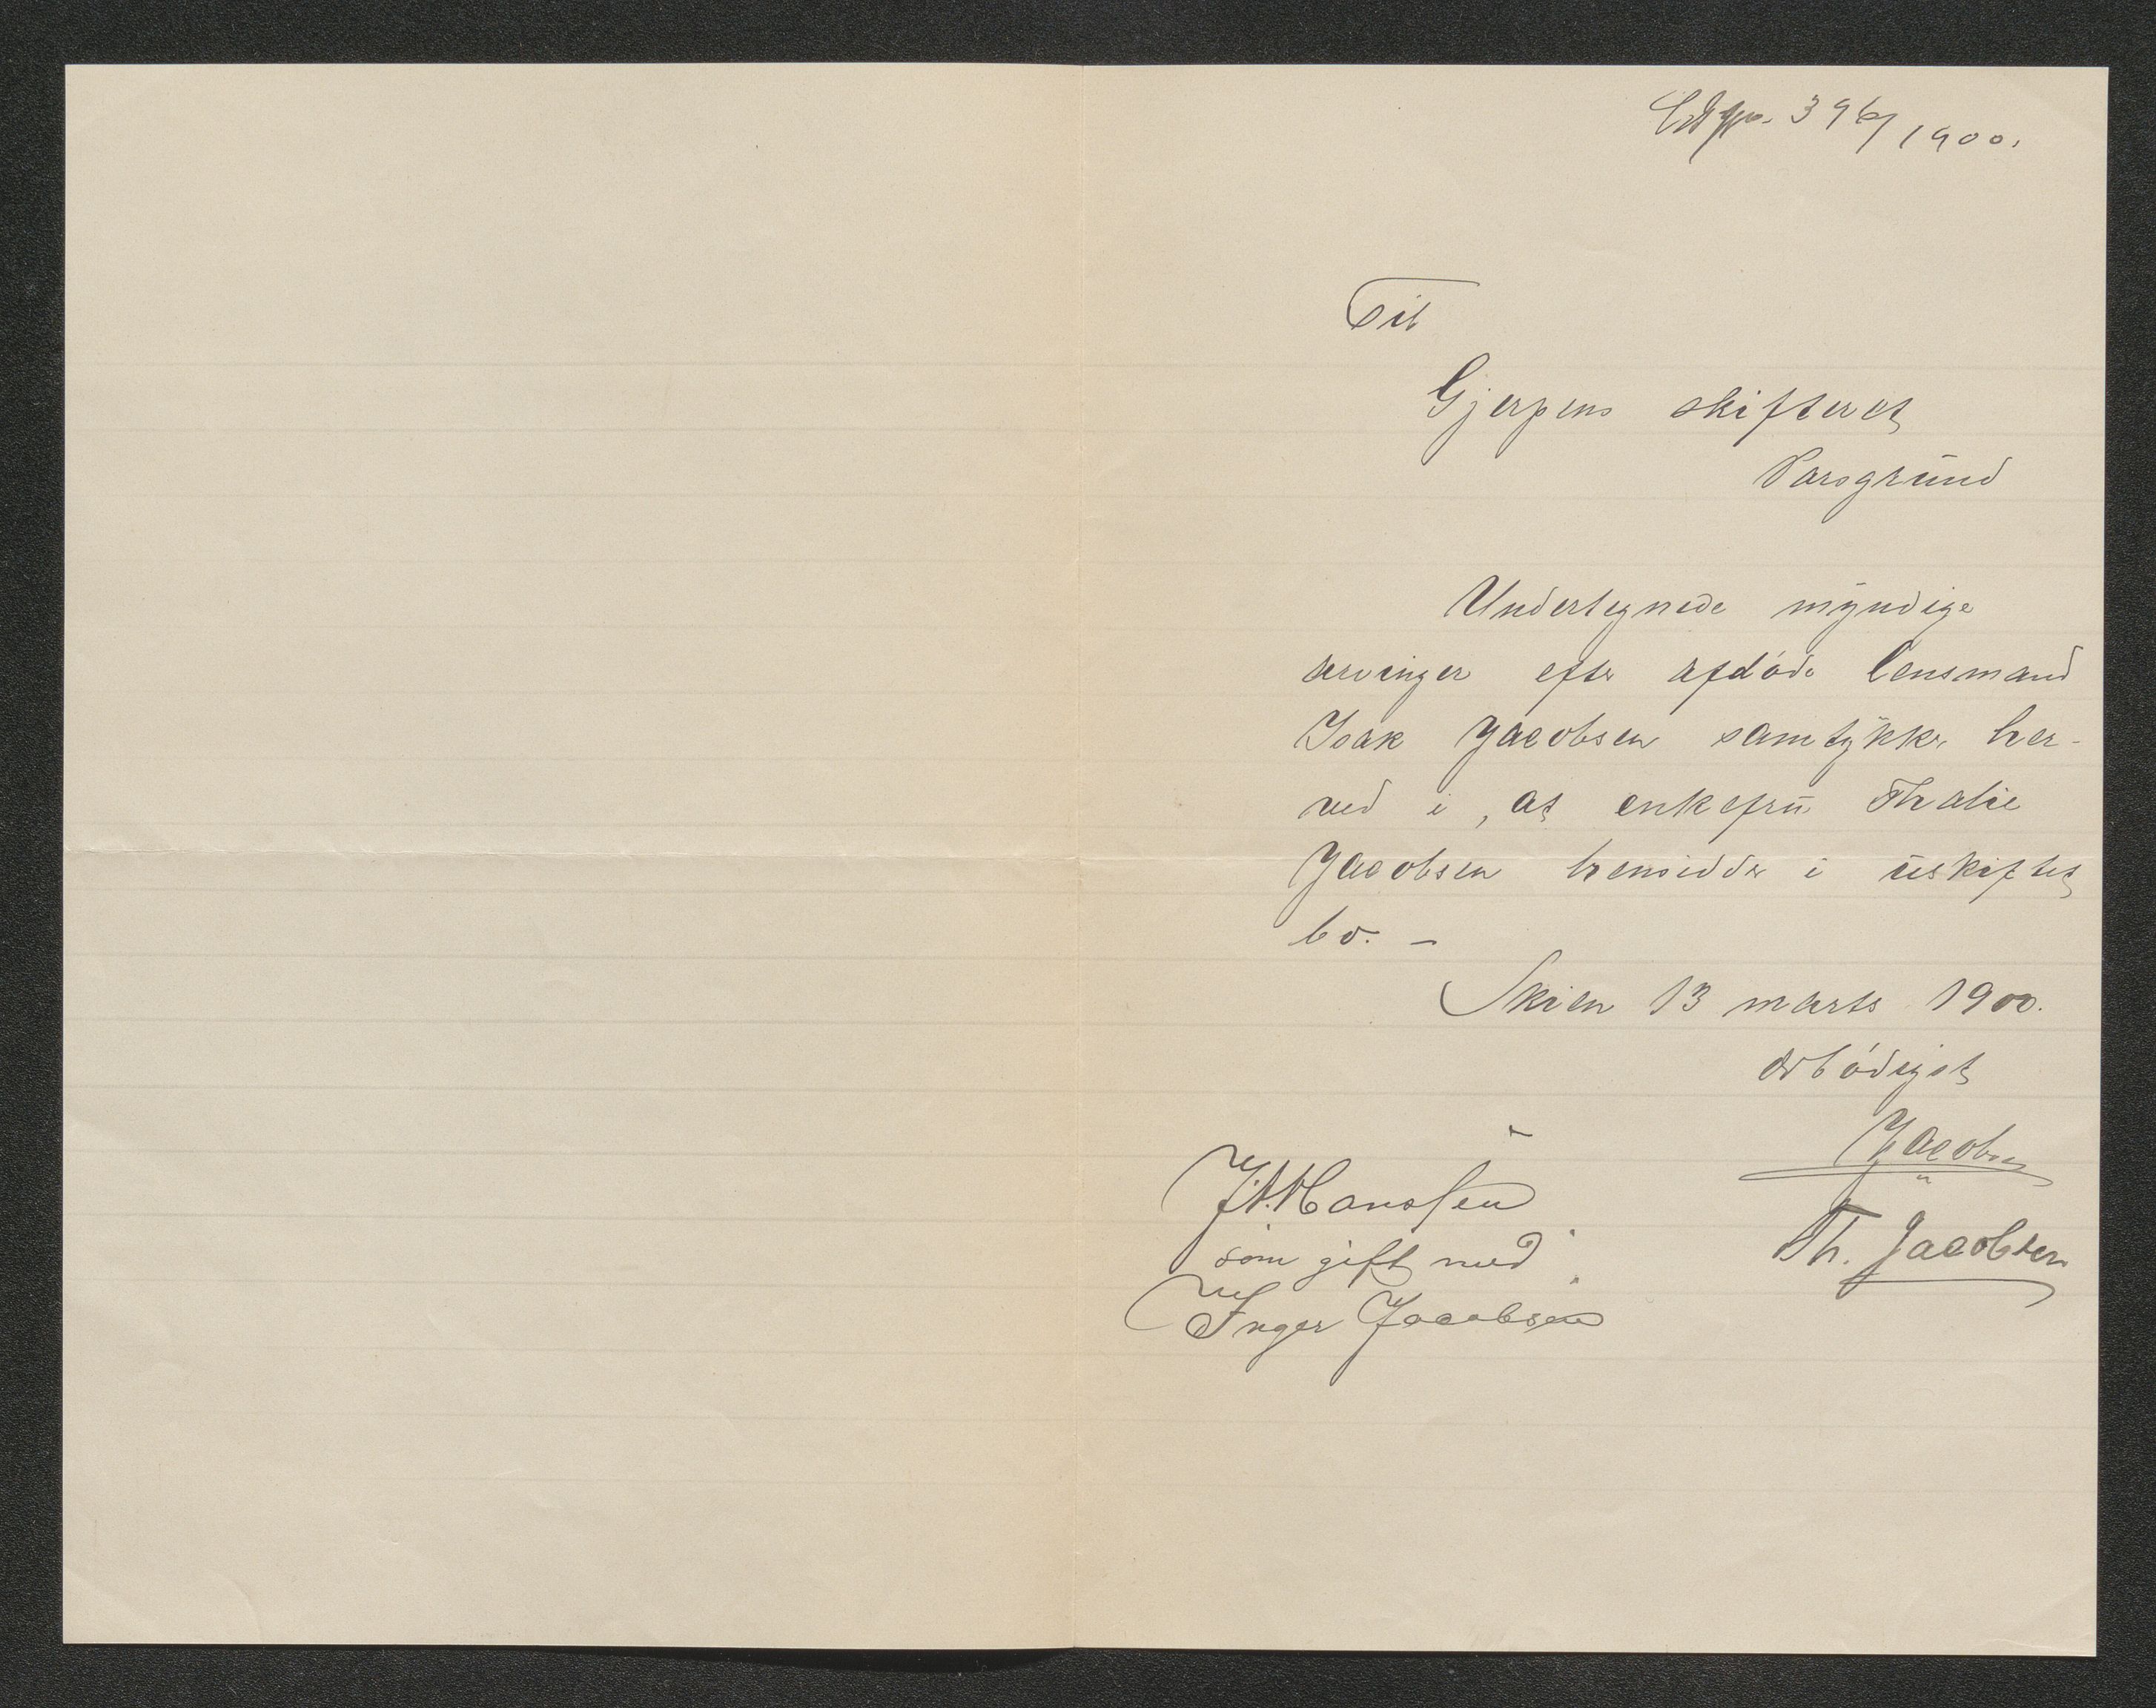 396/1900.
Til
Gjerpens skifteret
Porsgrund
Undertegnede myndige
arvinger efter afdøde lensmand
Isak Jacobsen samtykker her-
ved i, at enkefru Thalie
Jacobsen hensidder i uskiftet
bo. –
Skien 13 marts 1900.
Ærbødigst
Jacobsen
Th. Jacobsen
Hanssen
som gift med
Inger Jacobsen